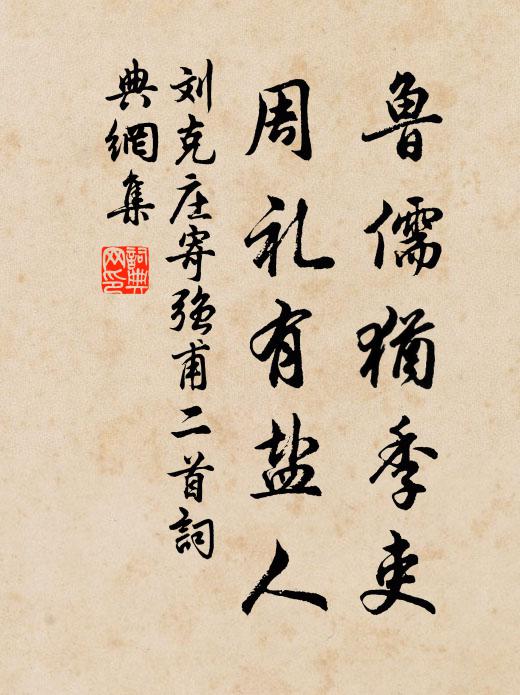 鲁儒犹季吏
周礼有盐人
刘克庄寄强甫二首詞
典網集
詞典
网印